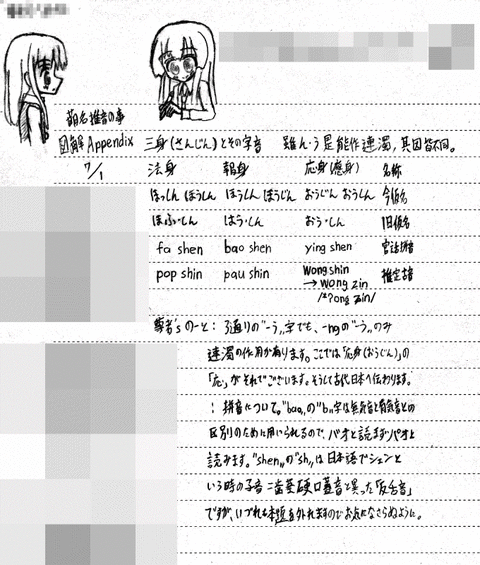 萌名推音の事
図解 Appendix 三身(さんじん)とその字音 雖ん・う是能作連濁, 其因皆不同。
7/1 法身 報身 応身(應身) 名称
ほっしん ほうしん ほうしん ほうじん おうじん おうしん 今仮名
ほふ・しん はう・しん おう・しん 旧仮名
fa shen bao shen ying shen 官話拼音
pop shin pau shin wong shin 推定古音
→ wong zin
/*ʔong zin/
筆者's のーと: 3通りの"ーう„字でも、-ngの"ーう„のみ
連濁の作用が有ります。ここでは「応身(おうじん)」の
「応」がそれでございます。そうして古代日本へ伝わります。
: 拼音について。"bao„の"b„字は無気音と有気音との
区別のために用いられるので、バオと読まずパオと
読みます。"shen„の"sh„は日本語でシェンと
いう時の子音=歯茎硬口蓋音と異った「反舌音」
ですが、いづれも本題を外れますのでお気になさらぬように。